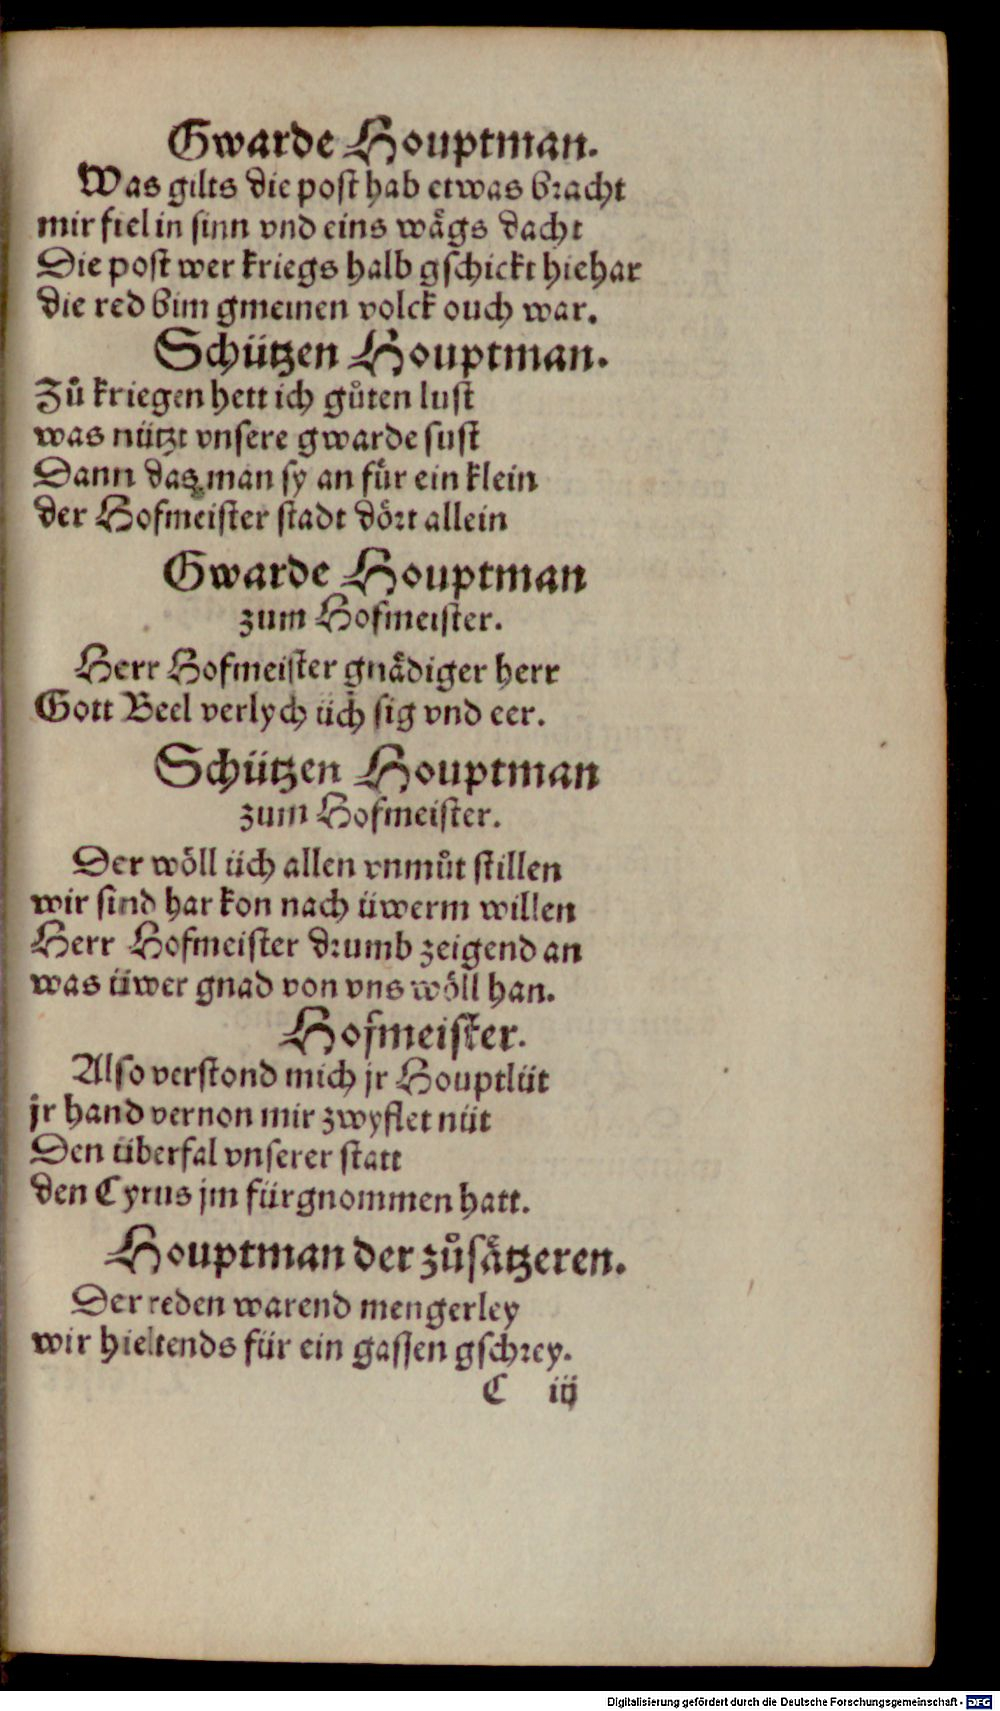 Gwarde Houptman.
Was gilts die post hab etwas bracht
mir fiel in sinn vnd eins waͤgs dacht
Die post wer kriegs halb gschickt hiehar
die red bim gmeinen volck ouch war.
Schützen Houptman.
Zů kriegen hett ich gůten lust
was nützt vnsere gwarde sust
Dann daz man sy an für ein klein
der Hofmeister stadt dört allein
Gwarde Houptman
zum Hofmeister.
Herr Hofmeister gnaͤdiger herr
Gott Beel verlych üch sig vnd eer.
Schützen Houptman
zum Hofmeister.
Der wöll üch allen vnmůt stillen
wir sind har kon nach üwerm willen
Herr Hofmeister drumb zeigend an
was üwer gnad von vns wöll han.
Hofmeister.
Also verstond mich jr Houptlüt
jr hand vernon mir zwyflet nüt
Den überfal vnserer statt
den Cyrus jm fürgnommen hatt.
Houptman der zůsaͤtzeren.
Der reden warend mengerley
wir hieltends für ein gassen gschrey.
C iij
Digitalisierung gefördert durch die Deutsche Forschungsgemeinschaft - DFG